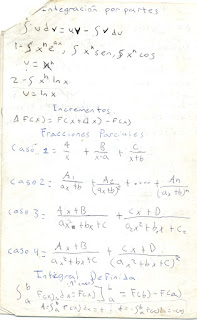 Integración por partes
∫udv = uv - ∫vdu
1- ∫xⁿeᵃˣ, ∫xⁿsen, ∫xⁿcos
u = xⁿ
2- ∫xⁿlnx
u = lnx
Incrementos
ΔF(x) = F(x+Δx) - F(x)
Fracciones Parciales
Caso 1 = A/x + B/x-a + C/x+b
Caso 2 = A₁/ax+b + A₂/(ax+b)² + ..... + An/(ax+b)ⁿ
Caso 3 = Ax+B/ax²+bx+C + Cx+D/ax²+bx+C
Caso 4 = Ax+B/ax²+bx+C + Cx+D/(ax²+bx+C)²
Integral Definida
∫ₐᵇ F(x)dx = F(x)]ₐᵇ = F(b) - F(a)